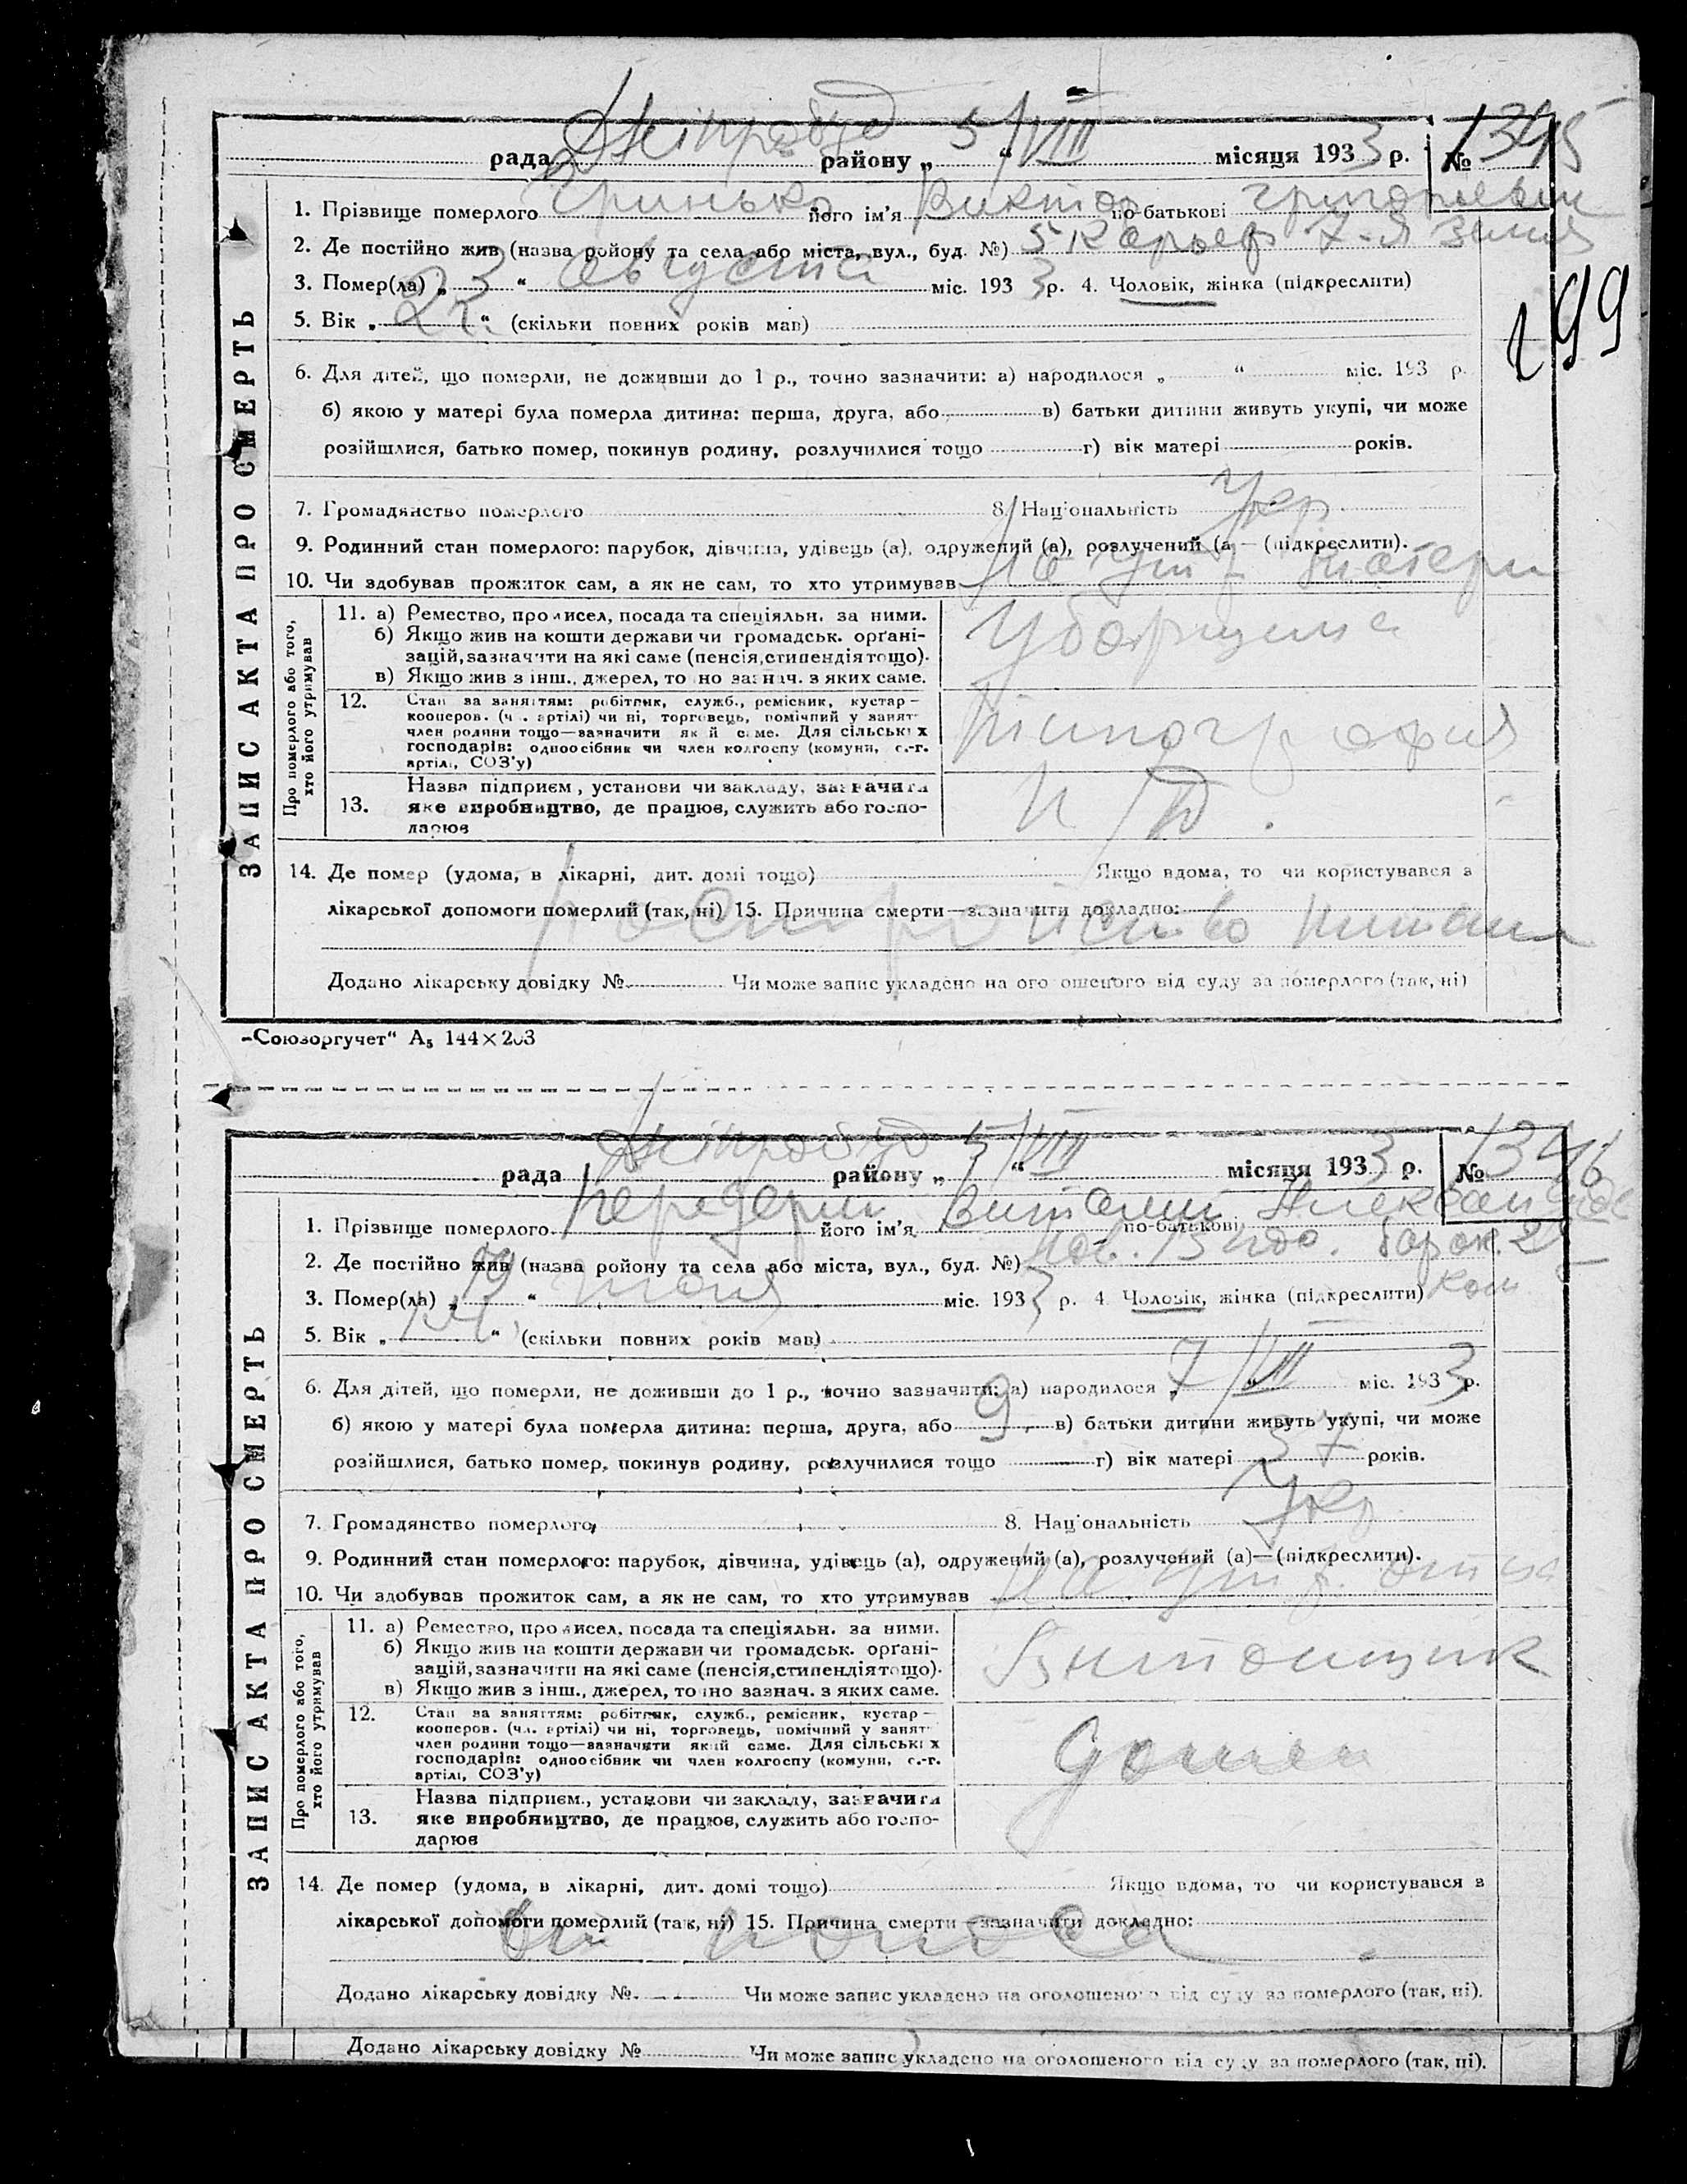 Дніпробуд 5/VIII
рада района „ “ місяця 1933 р. № 1345
1. Прізвище померлого Гринько його ім'я Виктор по-батькові Григорьевич
2. Де постійно жив (назва ройону та села або міста, вул., буд. №) 5 Карьер 7-я Земля
3. Помер(ла) „ 23 “ августа міс. 1933 р. 4. Чоловік, жінка (підкреслити)
199
5. Вік „ 2 г. “ (скільки повних років мав)
6. Для дітей, що померли, не доживши до 1 р., точно зазначити: а) народилося „ “ міс. 193 р.
б) якою у матері була померла дитина: перша, друга, або в) батьки дитини живуть укупі, чи може
розійшлися, батько помер, покинув родину, розлучилися тощо г) вік матері років.
7. Громадянство померлого 8. Національність Укр
9. Родинний стан померлого: парубок, дівчина, удівець (а), одружений (а), розлучений (а — (підкреслити).
10. Чи здобував прожиток сам, а як не сам, то хто утримував На ижд. матери
ЗАПИС АКТА ПРО СМЕРТЬ
Про померлого або того, хто його утримував
11. а) Ремество, промисел, посада та спеціяльн. за ними.
б) Якщо жив на кошти держави чи громадськ. орґані-
зацій, зазначити на які саме (пенсія, стипендія тощо).
в) Якщо жив з інш., джерел, точно зазнач. з яких саме.
Уборщица
12. Стан за заняттям: робітник, служб., ремісник, кустар—
кооперов. (чл. артілі) чи ні, торговець, помічний у занят
член родини тощо—зазначити який саме. Для сільських
господарів: одноосібник чи член колгоспу (комуни, с.-г.
артілі, СОЗ'у)
Типография
13. Назва підприєм, установи чи закладу, зазначити
яке виробництво, де працює, служить або госпо-
дарює
14. Де помер (удома, в лікарні, дит. домі тощо) Якщо вдома, то чи користувався з
лікарської допомоги померлий (так, ні) 15. Причина смерти—зазначити докладно:
Расстройство питания
Додано лікарську довідку № Чи може запис укладено на оголошеного від суду за померлого (так, ні)
„Союзоргучет“ А₅ 144×203
Дніпробуд 5/VIII
рада району „ “ місяця 1933 р. № 1346
1. Прізвище померлого Передерий його ім'я Виталий по-батькові Александ
2. Де постійно жив (назва ройону та села або міста, вул., буд. №) барак 2
3. Помер(ла) „ 19 “ июля міс. 1933 р. 4. Чоловік, жінка (підкреслити) ком
5. Вік „ “ (скільки повних років мав)
6. Для дітей, що померли, не доживши до 1 р., точно зазначити: а) народилося „ 7/VII “ міс. 1933 р.
б) якою у матері була померла дитина: перша, друга, або 9 в) батьки дитини живуть укупі, чи може
розійшлися, батько помер, покинув родину, розлучилися тощо г) вік матері 37 років.
7. Громадянство померлого 8. Національність Укр
9. Родинний стан померлого: парубок, дівчина, удівець (а), одружений (а), розлучений (а)—(підкреслити).
10. Чи здобував прожиток сам, а як не сам, то хто утримував На ижд. отца
ЗАПИС АКТА ПРО СМЕРТЬ
Про померлого або того, хто його утримував
11. а) Ремество, промисел, посада та спеціяльн. за ними.
б) Якщо жив на кошти держави чи громадськ. орґані-
зацій, зазначити на які саме (пенсія, стипендія тощо).
в) Якщо жив з інш., джерел, точно зазнач. з яких саме.
12. Стан за заняттям: робітник, служб., ремісник, кустар—
кооперов. (чл. артілі) чи ні, торговець, помічний у занят
член родини тощо—зазначити який саме. Для сільських
господарів: одноосібник чи член колгоспу (комуни, с.-г.
артілі, СОЗ'у)
13. Назва підприєм., установи чи закладу, зазначити
яке виробництво, де працює, служить або госпо-
дарює
14. Де помер (удома, в лікарні, дит. домі тощо) Якщо вдома, то чи користувався з
лікарської допомоги померлий (так, ні) 15. Причина смерти—зазначити докладно:
от поноса
Додано лікарську довідку № Чи може запис укладено на оголошеного від суду за померлого (так, ні).
Додано лікарську довідку № Чи може запис укладено на оголошеного від суду за померлого (так, ні).